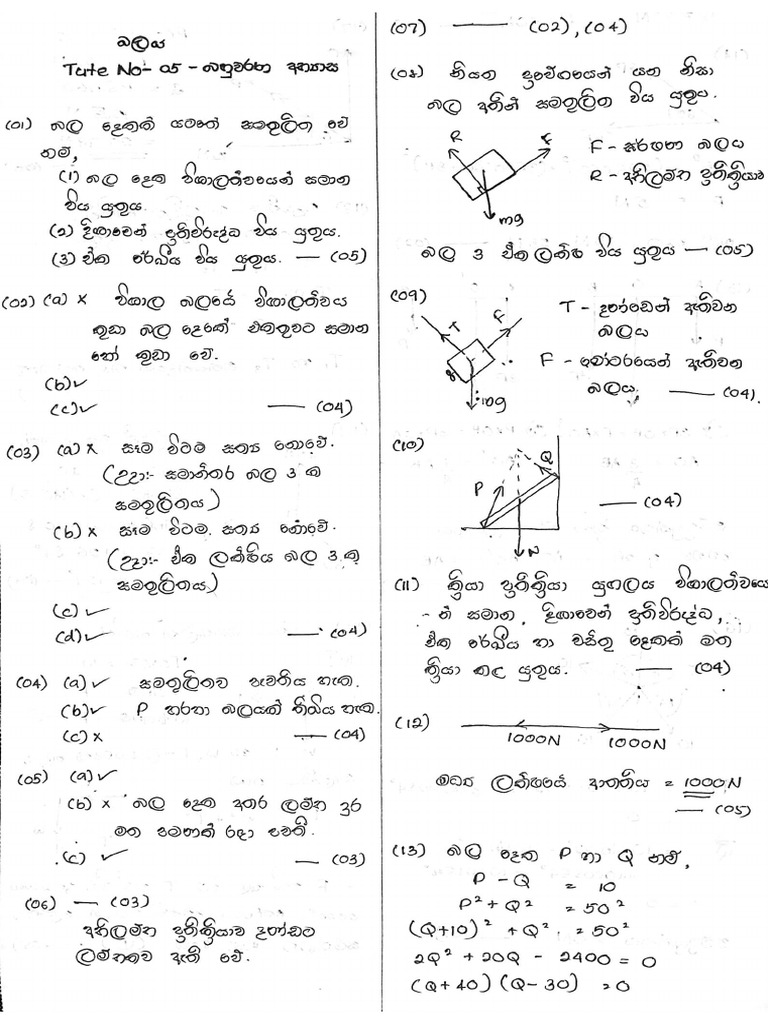 බලය
Tute No- 05 - බහුවරණ අභ්‍යාස
(01) බල දෙකක් යටතේ සමතුලිත වේ
නම්,
(1) බල දෙක විශාලත්වයෙන් සමාන
විය යුතුය.
(2) දිශාවෙන් ප්‍රතිවිරුද්ධ විය යුතුය.
(3) ඒක රේඛීය විය යුතුය. — (05)
(02) (a) × විශාල බලයේ විශාලත්වය
කුඩා බල දෙකේ එකතුවට සමාන
හෝ කුඩා වේ.
(b) ✓
(c) ✓ — (04)
(03) (a) × සෑම විටම සත්‍ය නොවේ.
(උදා:- සමාන්තර බල 3 ක
සමතුලිතය)
(b) × සෑම විටම සත්‍ය නොවේ.
(උදා:- ඒක ලක්ෂීය බල 3 ක
සමතුලිතය)
(c) ✓
(d) ✓ — (04)
(04) (a) ✓ සමතුලිතව පැවතිය හැක.
(b) ✓ P හරහා බලයක් තිබිය හැක.
(c) × — (04)
(05) (a) ✓
(b) × බල දෙක අතර ලම්භ දුර
මත පමණක් රඳා පවතී.
(c) ✓ — (03)
(06) — (03)
අභිලම්භ ප්‍රතික්‍රියාව දණ්ඩට
ලම්භකව ඇති වේ.
(07) — (02), (04)
(08) නියත ප්‍රවේගයෙන් යන නිසා
බල අතින් සමතුලිත විය යුතුය.
R F
mg
F - ඝර්ෂණ බලය
R - අභිලම්භ ප්‍රතික්‍රියාව
බල 3 ඒක ලක්ෂ විය යුතුය — (05)
(09)
T F
mg
T - දණ්ඩෙන් ඇතිවන
බලය
F - මෝටරයෙන් ඇතිවන
බලය. — (04).
(10)
P Q
W
— (04)
(11) ක්‍රියා ප්‍රතික්‍රියා යුගලය විශාලත්වයෙ
- න් සමාන, දිශාවෙන් ප්‍රතිවිරුද්ධ,
ඒක රේඛීය හා වස්තු දෙකක් මත
ක්‍රියා කළ යුතුය. — (04)
(12)
1000N 1000N
මධ්‍ය ලක්ෂයේ ආතතිය = 1000N
— (05)
(13) බල දෙක P හා Q නම්,
P - Q = 10
P² + Q² = 50²
(Q+10)² + Q² = 50²
2Q² + 20Q - 2400 = 0
(Q + 40) (Q - 30) = 0